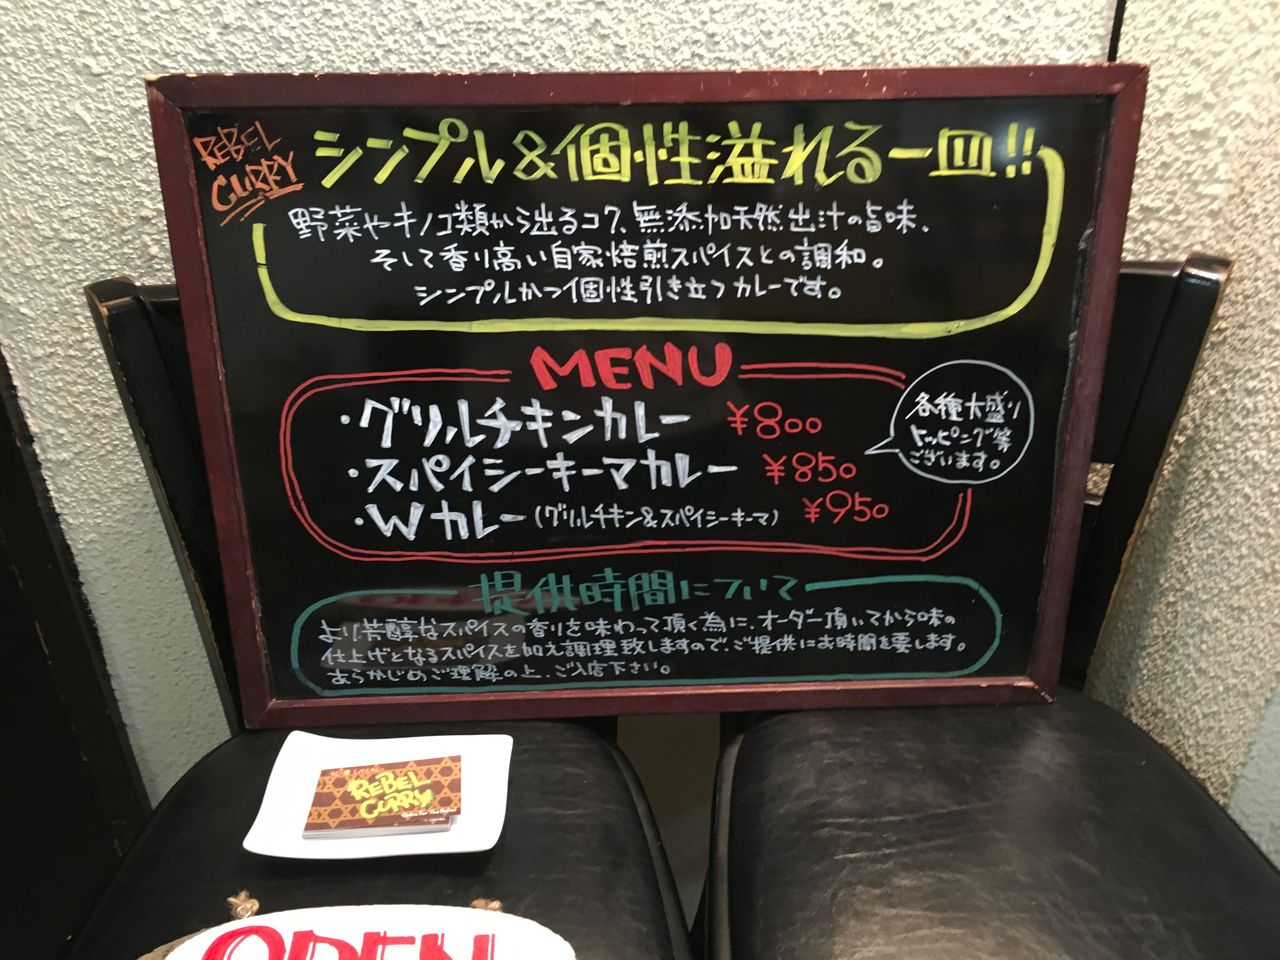 REBEL
CURRY
シンプル&個性溢れる一皿!!
野菜やキノコ類から出るコク、無添加天然出汁の旨味、
そして香り高い自家焙煎スパイスとの調和。
シンプルかつ個性引き立つカレーです。
MENU
・グリルチキンカレー ¥800
・スパイシーキーマカレー ¥850
・Wカレー(グリルチキン&スパイシーキーマ) ¥950
各種大盛り
トッピング等
ございます。
提供時間について
より芳醇なスパイスの香りを味わって頂く為に、オーダー頂いてから味の
仕上げとなるスパイスを加え調理致しますので、ご提供にお時間を要します。
あらかじめご理解の上、ご入店下さい。
REBEL
CURRY
OPEN